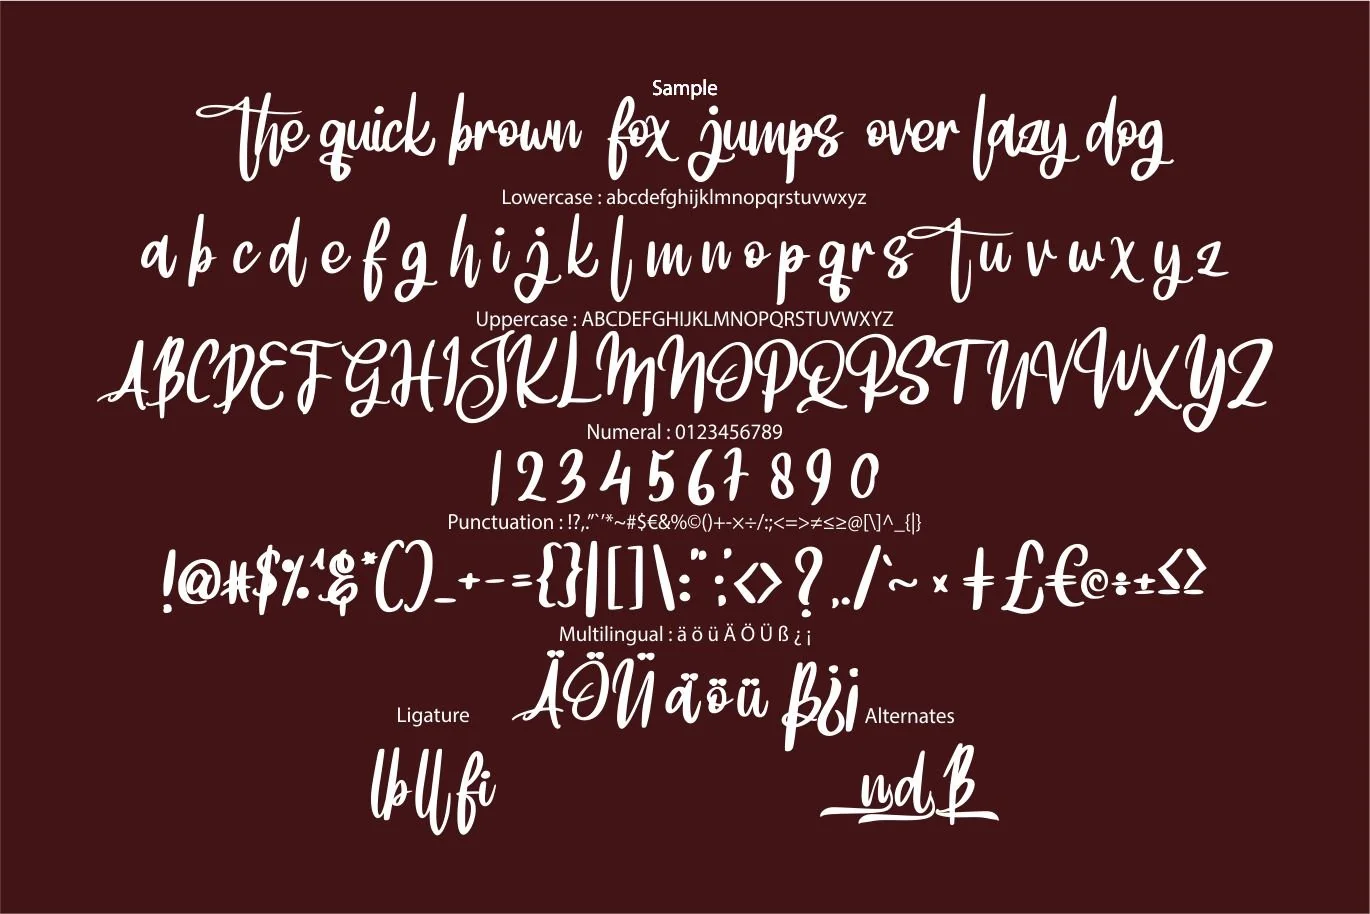 Sample
the quick brown fox jumps over lazy dog
Lowercase : abcdefghijklmnopqrstuvwxyz
a b c d e f g h i j k l m n o p q r s t u v w x y z
Uppercase : ABCDEFGHIJKLMNOPQRSTUVWXYZ
ABCDEFGHIJKLMNOPQRSTUVWXYZ
Numeral : 0123456789
1 2 3 4 5 6 7 8 9 0
Punctuation : !?,.”`’*~#$€&%©()+-×÷/:;<=>≠≤≥@[\]^_{|}
!@#$%^&*()_+-={}|[]\:";'<>?,./`~×≠£€©÷±≤≥
Multilingual : ä ö ü Ä Ö Ü ß ¿ ¡
ÄÖÜäöüß¿¡
Ligature
Alternates
lb ll fi
nd B